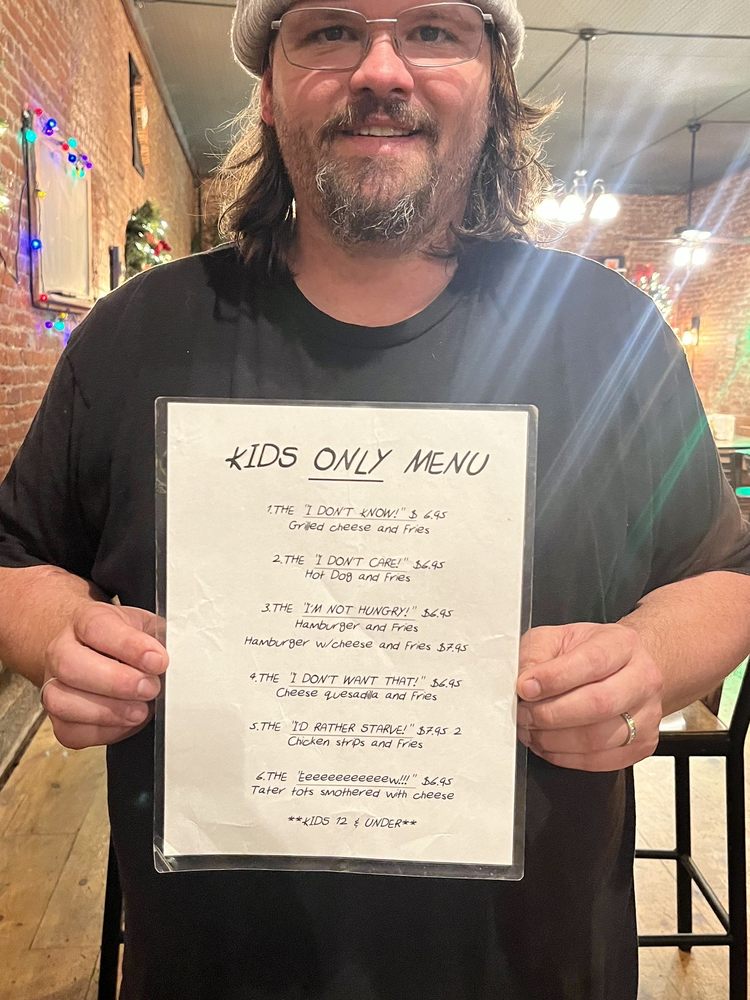 KIDS ONLY MENU
1. THE "I DON'T KNOW!" $ 6.95
Grilled cheese and Fries
2. THE "I DON'T CARE!" $6.95
Hot Dog and Fries
3. THE "I'M NOT HUNGRY!" $6.95
Hamburger and Fries
Hamburger w/cheese and Fries $7.95
4. THE "I DON'T WANT THAT!" $6.95
Cheese quesadilla and Fries
5. THE "I'D RATHER STARVE!" $7.95 2
Chicken strips and Fries
6. THE "Eeeeeeeeeeeew!!!" $6.95
Tater tots smothered with cheese
**KIDS 12 & UNDER**